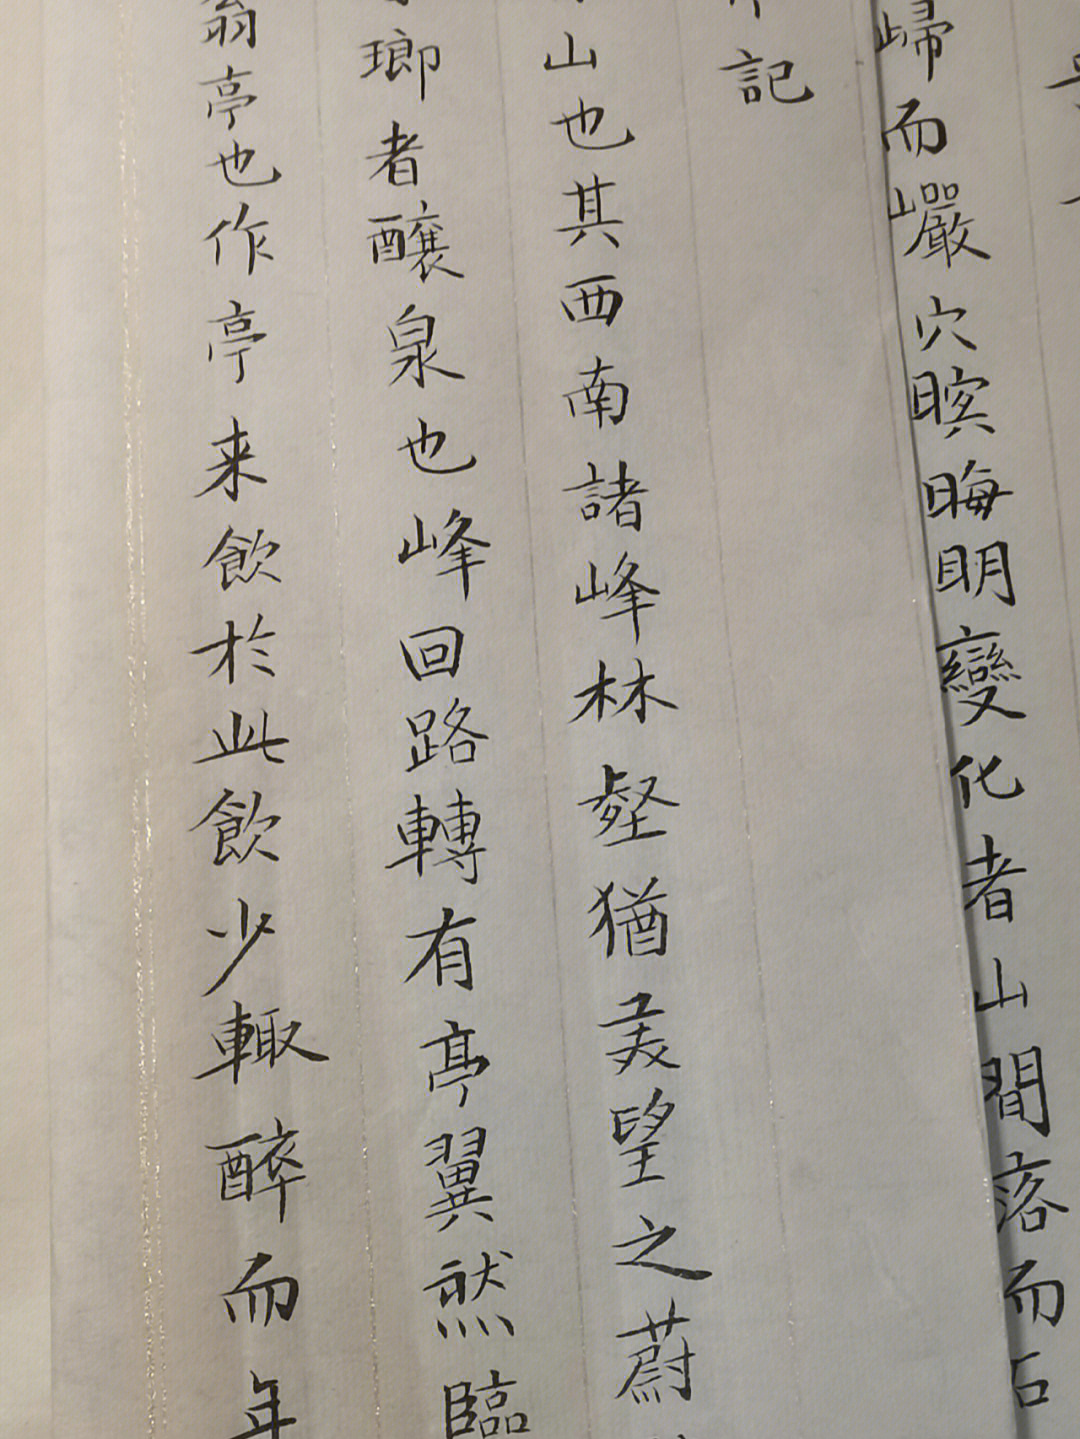 歸而巖穴暝晦明變化者山間落而石
記
山也其西南諸峰林壑猶美望之蔚
瑯者釀泉也峰回路轉有亭翼然臨
翁亭也作亭来飲於此飲少輙醉而年